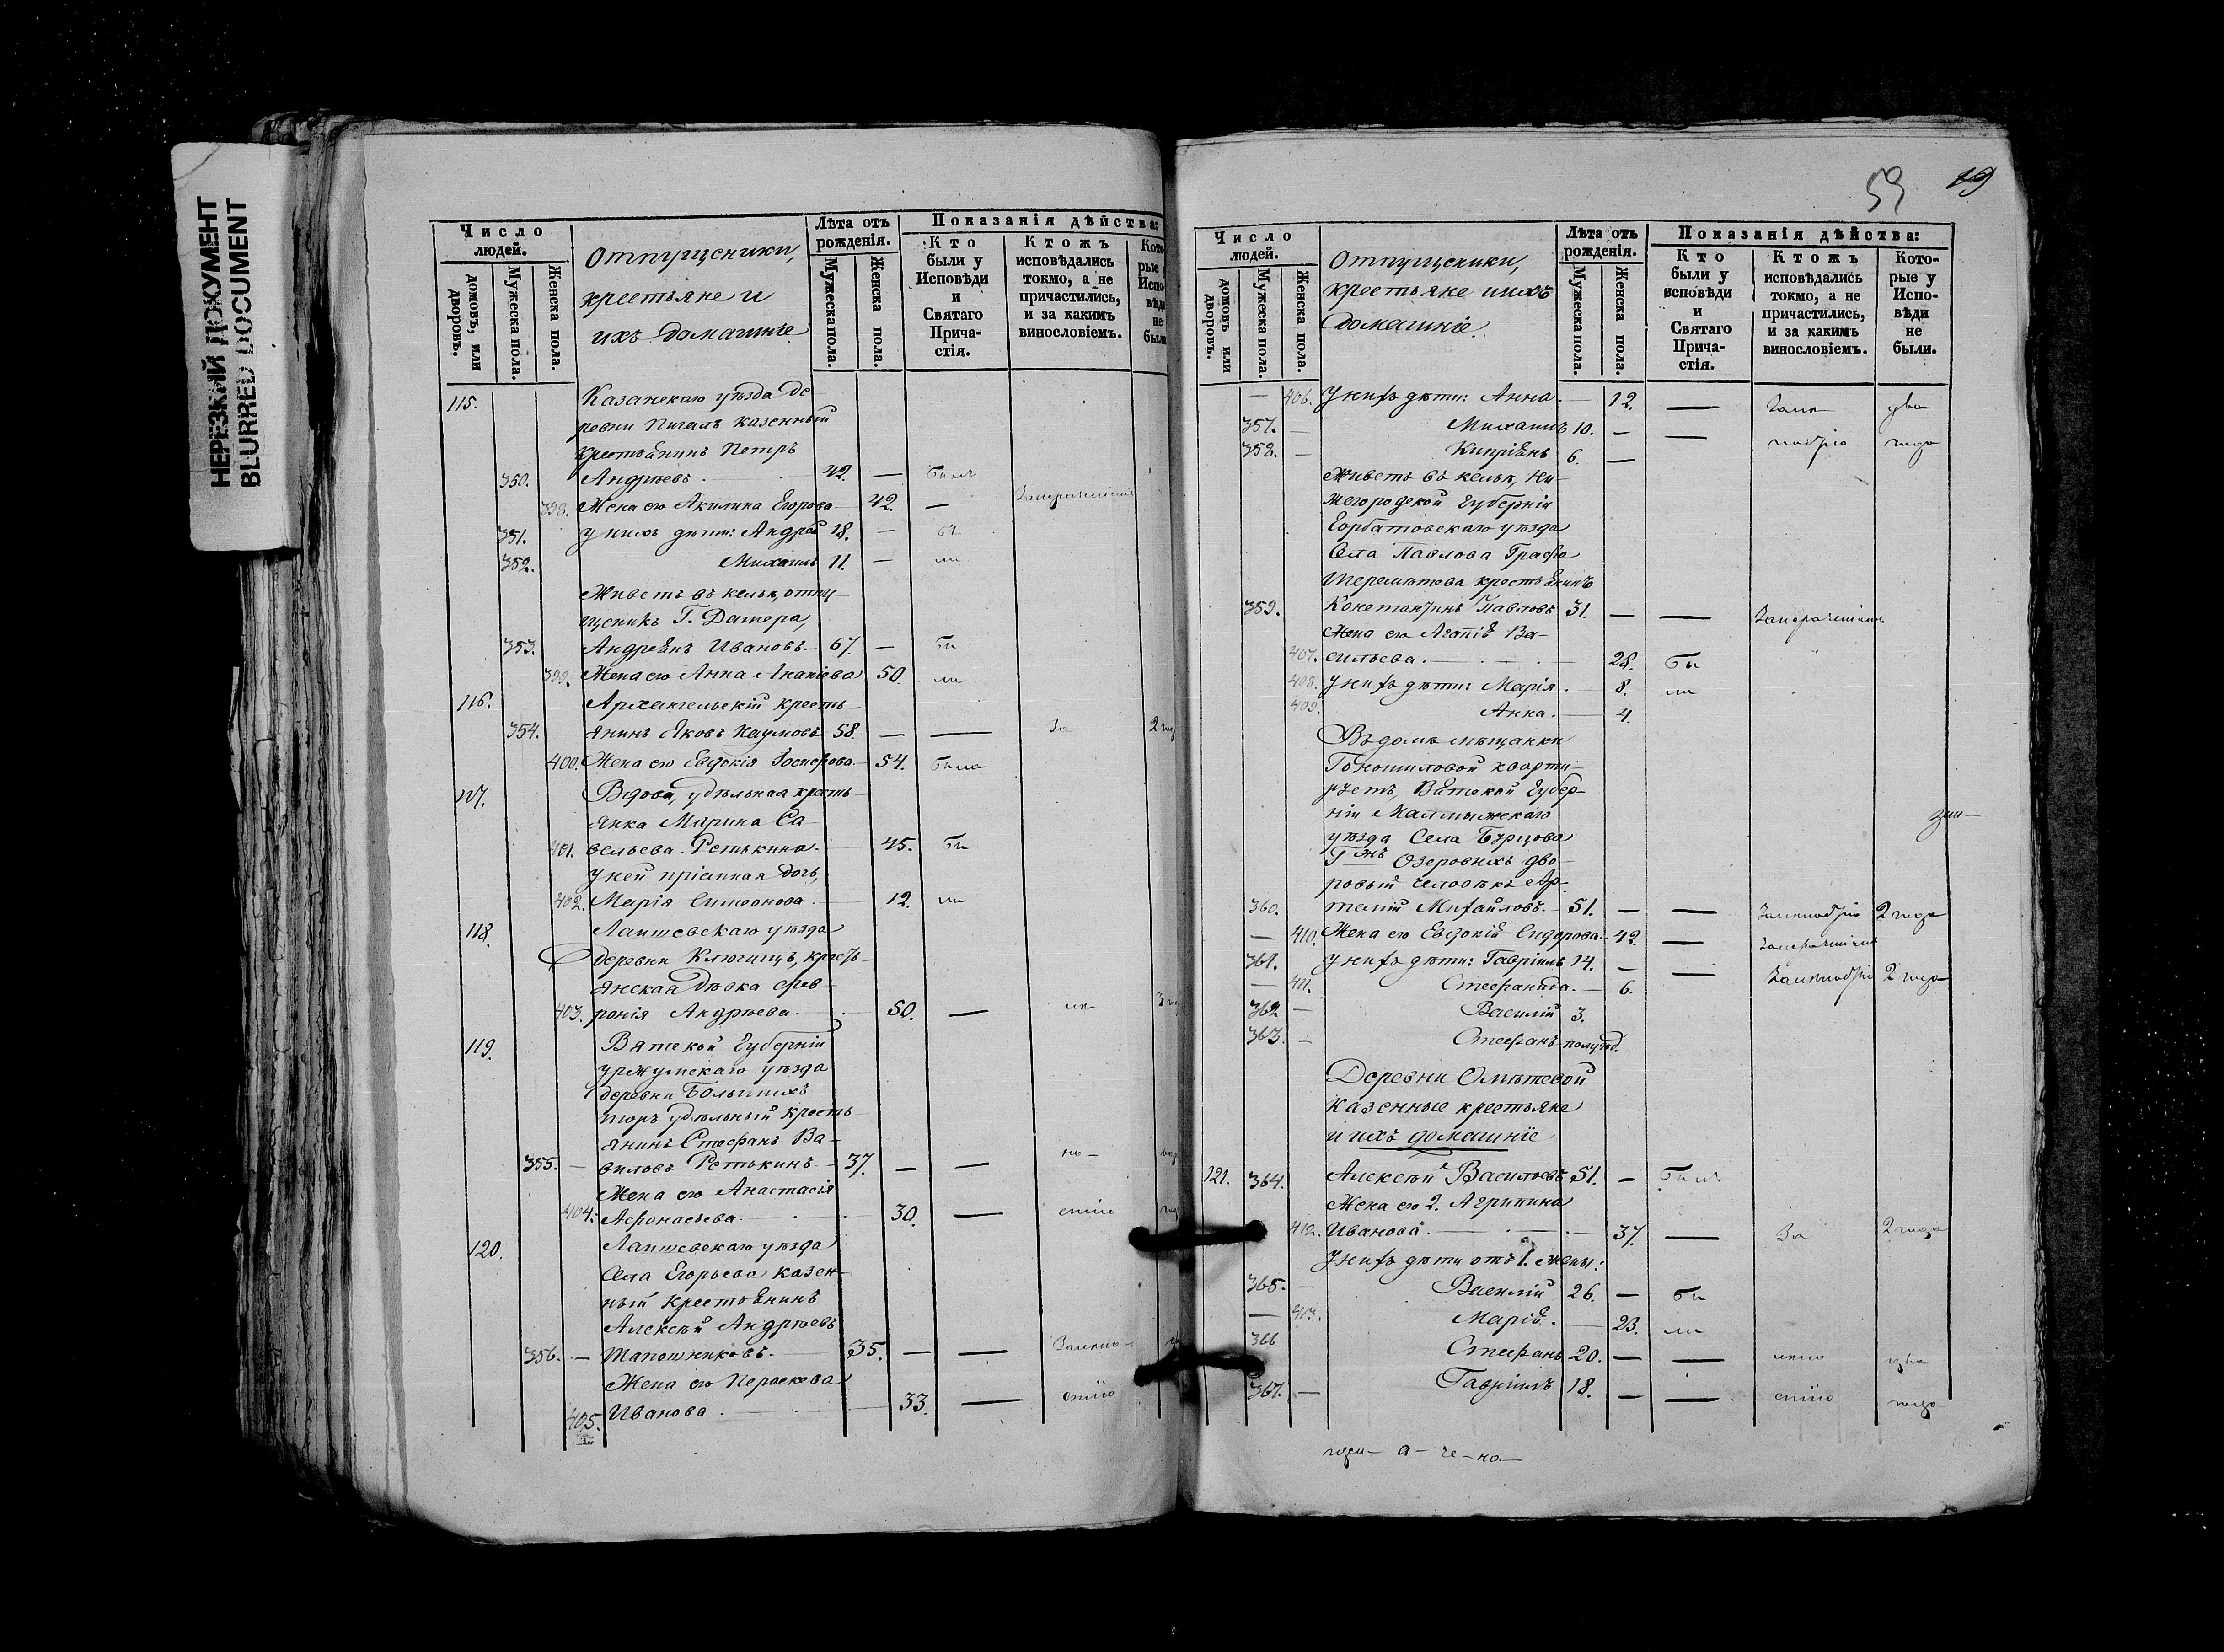 НЕРЕЗКИЙ ДОКУМЕНТ
BLURRED DOCUMENT
Число людей.
домовъ, или дворовъ.
Мужеска пола.
Женска пола.
Отпущеники,
крестьяне и
ихъ домашніе.
Лѣта отъ рожденія.
Мужеска пола.
Женска пола.
Показанія дѣйства:
Кто были у Исповѣди и Святаго Прича-стія.
Ктожъ исповѣдались токмо, а не причастились, и за какимъ винословіемъ.
Кото-рые у Испо-вѣди не были.
115. Казанскаго уѣзда де
ревни Пигаль казенный
крестьянинъ Петръ
350. Андреевъ. 42. — былъ
398. Жена его Акилина Егорова 42. —
351. у нихъ дѣти: Андрей 18. — бы
352. Михаилъ 11. — ли
Живетъ въ кельи, отпу-
щеникъ Г. Дамера,
353. Андреянъ Ивановъ. 67. — бы
399. Жена его Анна Ананіева 50. ли
116. Архангельскій кресть-
354. янинъ Яковъ Наумовъ 58. — — За 2 год
400. Жена его Евдокія Іосифова 54. была
117. Вдова, удѣльная кресть-
янка Марина Са-
401. вельева Ретькина. 45. бы
у ней пріемная дочь,
402. Марія Симеонова. 12. ли
118. Лаишевскаго уѣзда
деревни Ключищъ, кресть-
янская дѣвка Фев-
403. ронія Андреева. 50. —
119. Вятской Губерніи
уржумскаго уѣзда
деревни Большихъ
шоръ удѣльный кресть
янинъ Стефанъ Ва-
355. — виловъ Ретькинъ. 37. — — по-
Жена его Анастасія
404. Афонасьева. 30. —
120. Лаишевскаго уѣзда
Села Егорьева казен-
ный крестьянинъ
Алексѣй Андреевъ
356. — Шапошниковъ. 35. — —
Жена его Параскева
405. Иванова. 33. —
59 19
Число людей.
домовъ или дворовъ.
Мужеска пола.
Женска пола.
Отпущеники,
крестьяне и ихъ
домашніе.
Лѣта отъ рожденія.
Мужеска пола.
Женска пола.
Показанія дѣйства:
Кто были у исповѣди и Святаго Прича-стія.
Ктожъ исповѣдались токмо, а не причастились, и за какимъ винословіемъ.
Кото-рые у Испо-вѣди не были.
— 406. У нихъ дѣти: Анна. — 12. — два
357. — Михаилъ 10. — — года
358. — Кипріянъ 6. —
Живетъ въ кельи, Ни-
жегородской Губерніи
Горбатовскаго уѣзда
Села Павлова Графа
Шереметева крестьянинъ
359. Константинъ Павловъ 31. — —
Жена его Агапія Ва-
407. сильева. 28. бы
408. У нихъ дѣти: Марія. 8. ли
409. Анна. 4.
Въ домѣ мѣщанки
квarти-
руетъ, Вятской Губер-
ніи Малмыжскаго
уѣзда Села Бурцова
Г-жъ Озеровыхъ дво-
ровый человѣкъ Ар-
360. темій Михайловъ. 51. — — 2 года
— 410. Жена его Евдокія Сидорова. 42. —
361. У нихъ дѣти: Гавріилъ 14. — — 2 года
— 411. Стефанида. — 6.
362 — Василій 3.
363. — Стефанъ полугод.
Деревни Ометевой
казенные крестьяне
и ихъ домашніе
121. 364. Алексѣй Васильевъ 51. — былъ
Жена его 2. Агрипина
412. Иванова. 37. — За 2 года
У нихъ дѣти отъ 1. жены:
365. — Василій 26. — бы
— 413. Марія. — 23. ли
366 Стефанъ 20. — —
367. — Гавріилъ 18. — — года